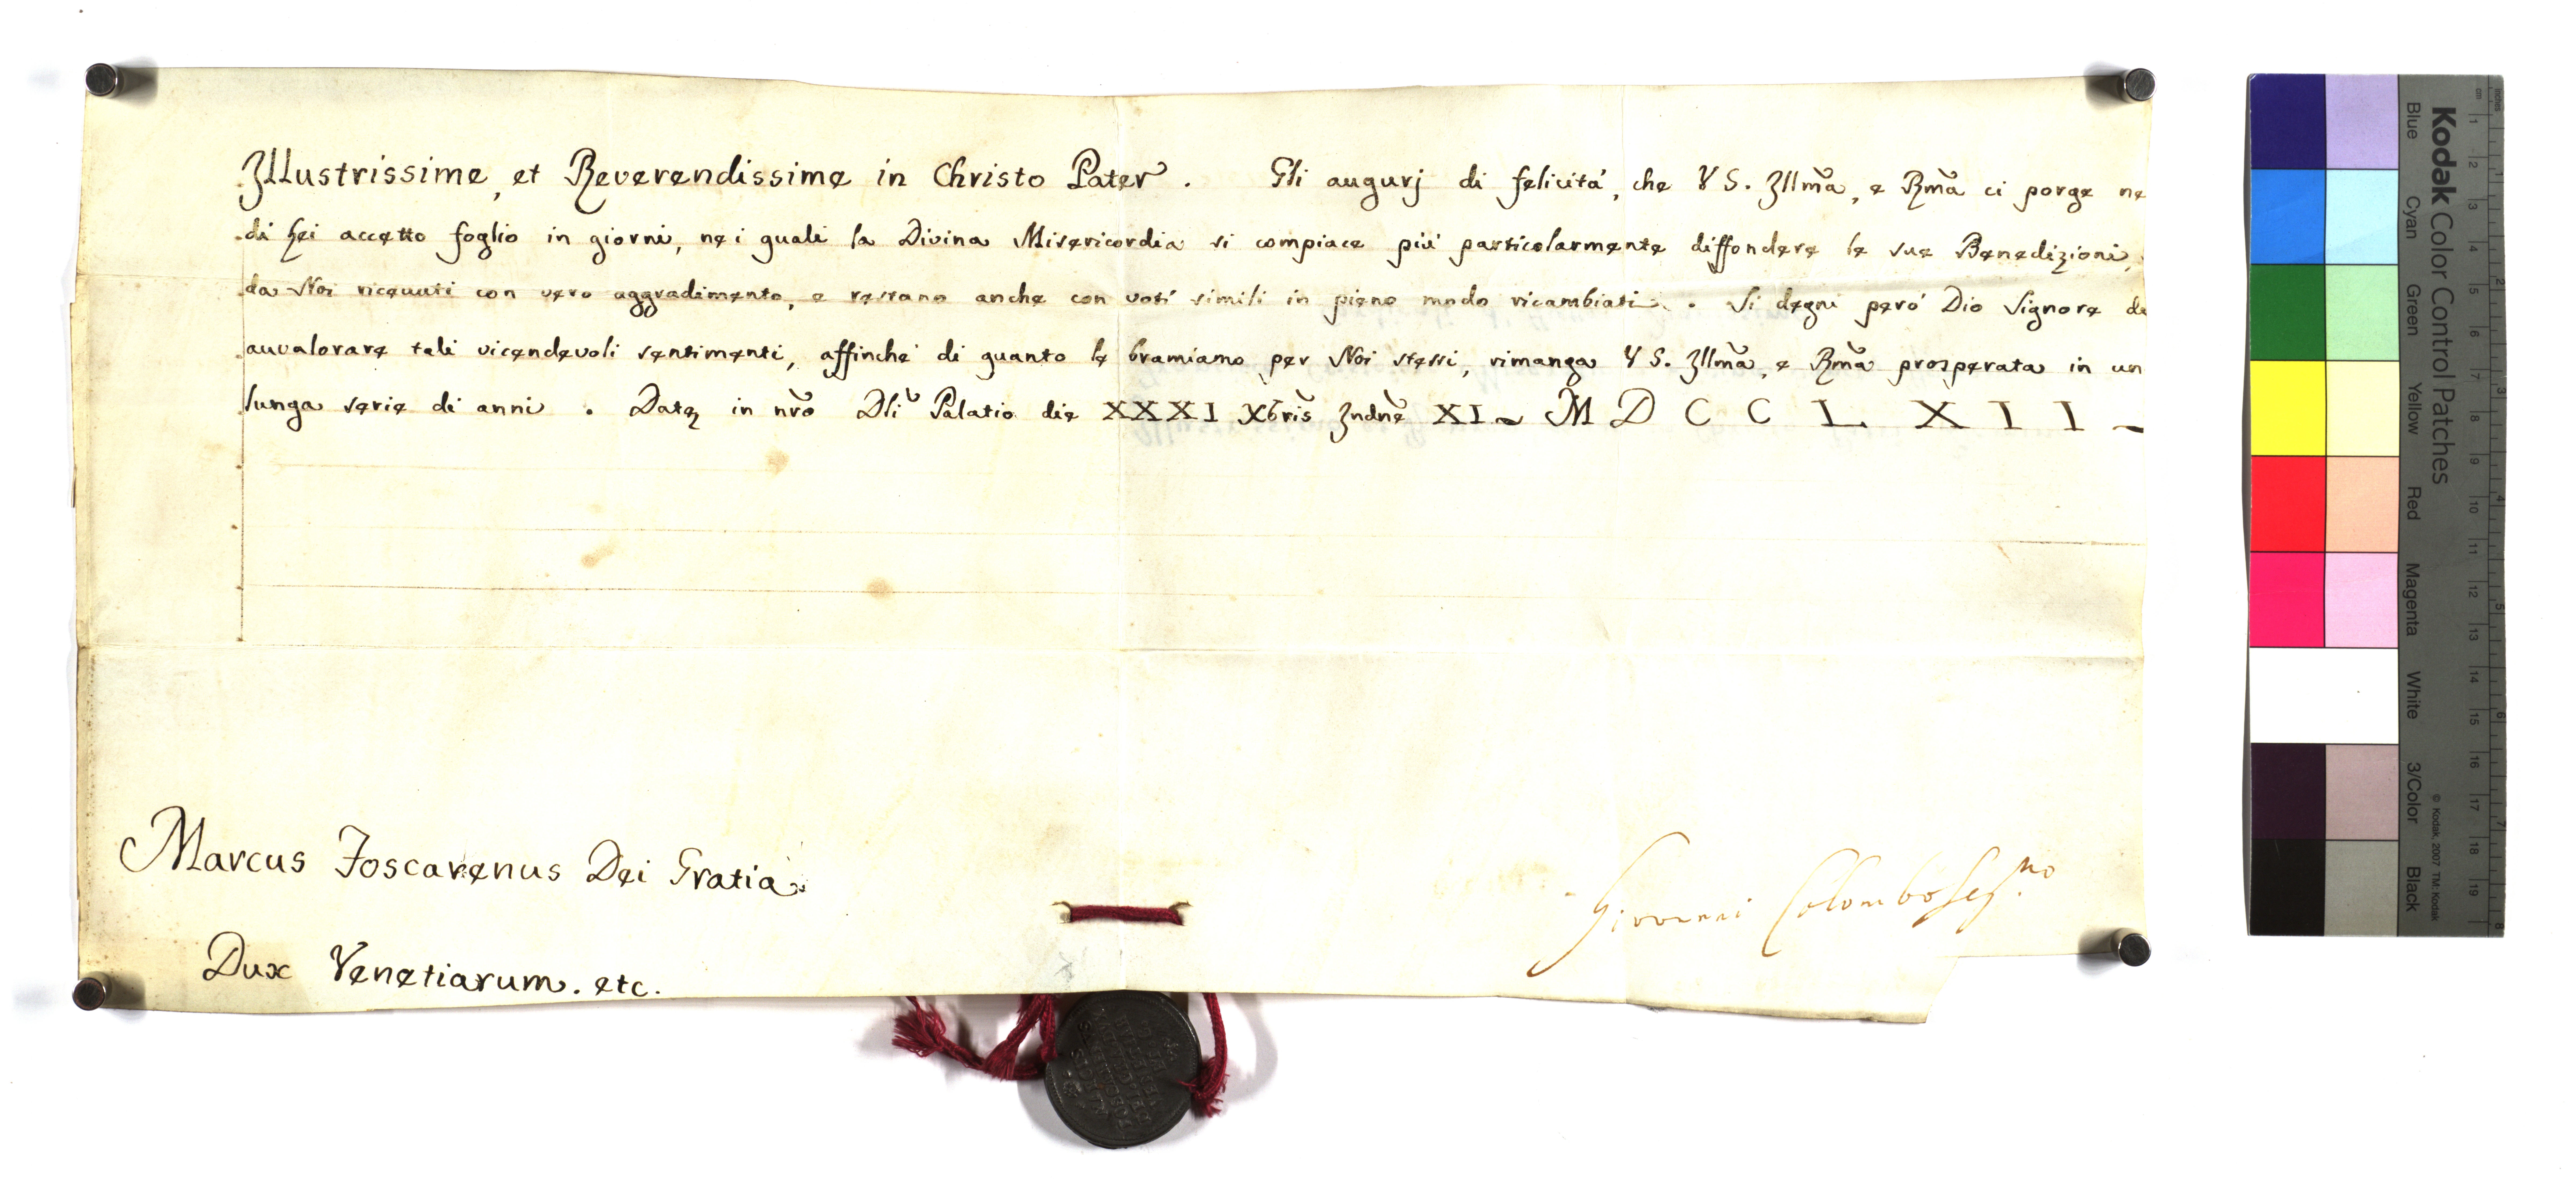 Illustrissime, et Reverendissime in Christo Pater. Gli augurj di felicitá, che V S. Illm̃a, e Rm̃a ci porge ne
di Lei accetto foglio in giorni, ne i quali la Divina Misericordia si compiace più particolarmente diffondere le sue Benedizioni,
da Noi ricevuti con vero aggradimento, e restano anche con voti simili in pieno modo ricambiati. Si degni peró Dio Signore de
auvalorare tali vicendevoli sentimenti, affinché di quanto le bramiamo per Noi stessi, rimanga V S. Illm̃a, e Rm̃a prosperata in un
lunga serie di anni. Datꝫ in nr̃o Dlĩ Palatio die XXXI Xbris̃ Indnẽ XI ~ M D C C L X I I ~
Marcus Foscarenus Dei Gratia
Dux Venetiarum. etc.
Giovanni Colombo Seg.no
Kodak Color Control Patches
Blue Cyan Green Yellow Red Magenta White 3/Color Black
© Kodak, 2007 TM: Kodak
cm 1 2 3 4 5 6 7 8 9 10 11 12 13 14 15 16 17 18 19
inches 1 2 3 4 5 6 7 8